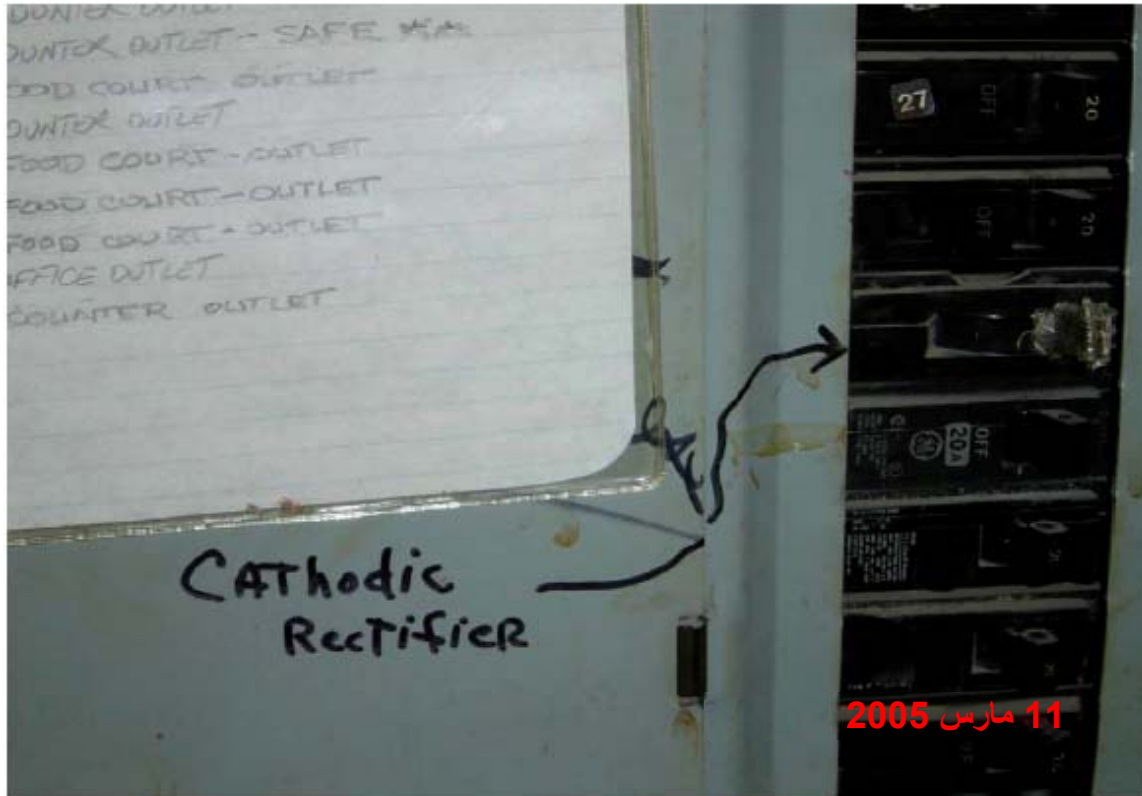 OUNTER OUTLET
OUNTER OUTLET - SAFE **
OOD COURT OUTLET
OUNTER OUTLET
FOOD COURT - OUTLET
FOOD COURT - OUTLET
FOOD COURT - OUTLET
OFFICE OUTLET
COUNTER OUTLET
CAThodic
RecTifieR
27 OFF 20
OFF 20
OFF 20A
11 مارس 2005